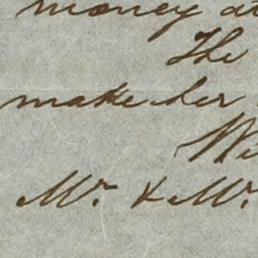 money at
The
make her
Mr. & Mr.